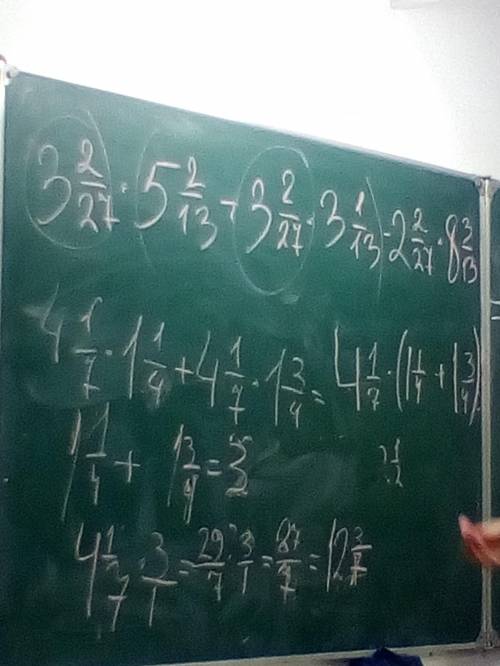 3 2/27 · 5 2/13 + 3 2/27 · 3 1/13) - 2 2/27 · 8 3/13
4 1/7 · 1 1/4 + 4 1/7 · 1 3/4 = 4 1/7 · (1 1/4 + 1 3/4)
1 1/4 + 1 3/4 = 3
4 1/7 · 3/1 = 29/7 · 3/1 = 87/7 = 12 3/7